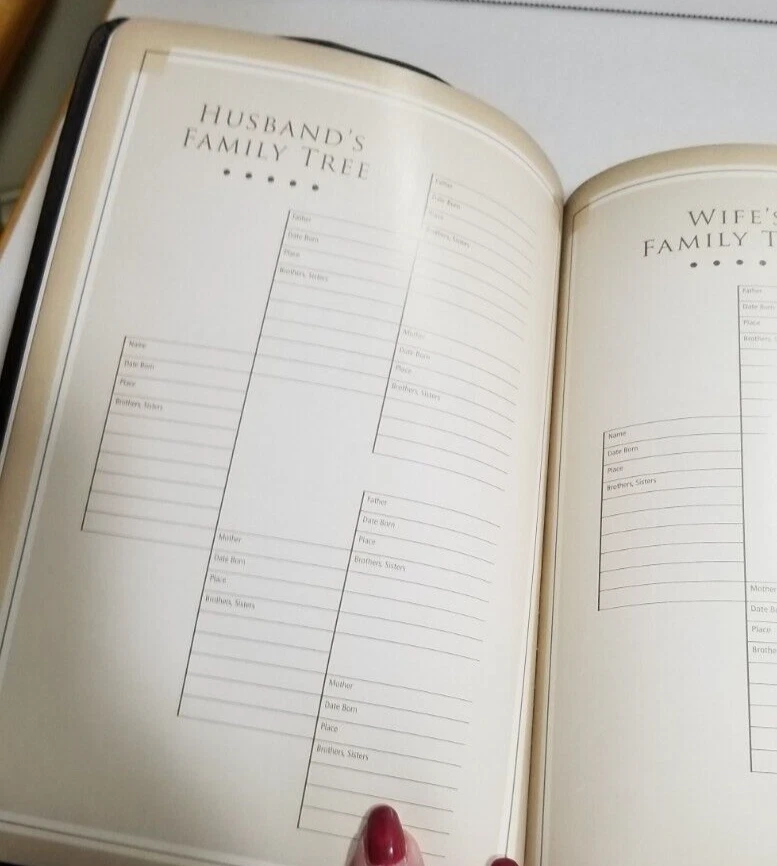 HUSBAND'S
FAMILY TREE
Name
Date Born
Place
Brothers, Sisters
Father
Date Born
Place
Brothers, Sisters
Mother
Date Born
Place
Brothers, Sisters
Father
Date Born
Place
Brothers, Sisters
Mother
Date Born
Place
Brothers, Sisters
Father
Date Born
Place
Brothers, Sisters
Mother
Date Born
Place
Brothers, Sisters
WIFE'S
FAMILY T
Name
Date Born
Place
Brothers, Sisters
Father
Date Born
Place
Brothers, S
Mother
Date B
Place
Brothe